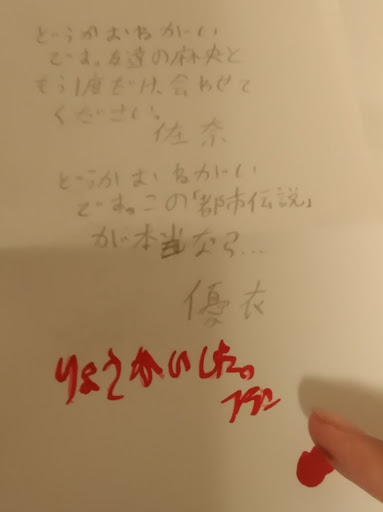 どうかおねがーい
です。友達の麻央と
もう1度だけ、会わせて
ください。
佐奈
どうかおねがーい
です。この「都市伝説」
が本当なら…
優衣
りょうかいした。